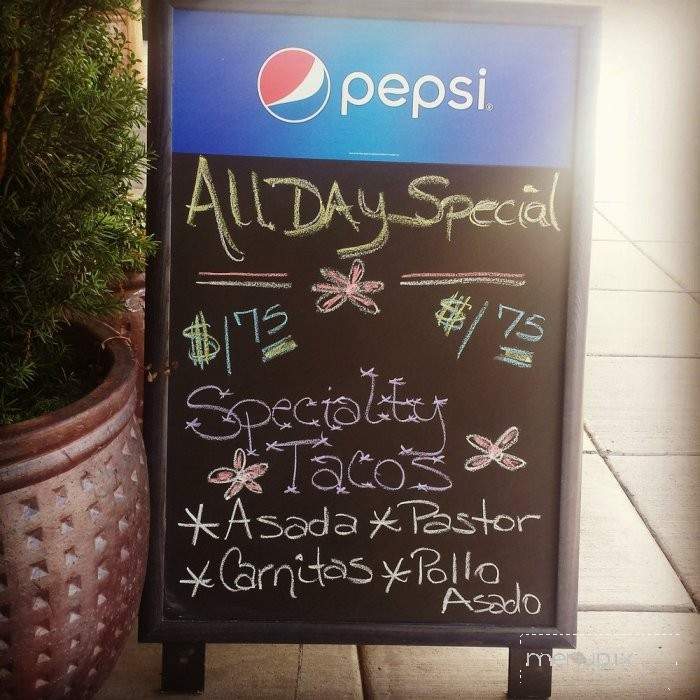 pepsi
All Day Special
$1 75 $1 75
Speciality
Tacos
*Asada *Pastor
*Carnitas *Pollo
Asado
menupix